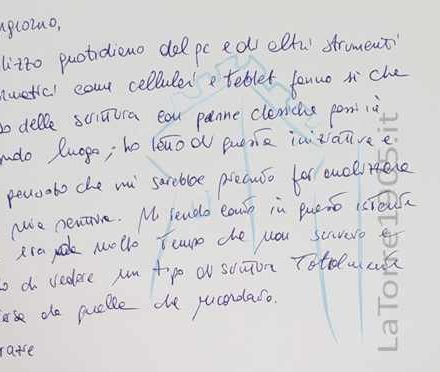 ngiorno,
lizzo quotidiano del pc e di altri strumenti
rmatici come cellulari e tablet fanno si che
o della scrittura con penne classiche passi in
ndo luogo; ho letto di questa iniziativa e
pensato che mi sarebbe piaciuto far analizzare
mia scrittura. Mi rendo conto in questo istante
era molto tempo che non scrivevo e
o di vedere un tipo di scrittura totalmente
ersa da quella che ricordavo.
razie
LaTorre1905.it